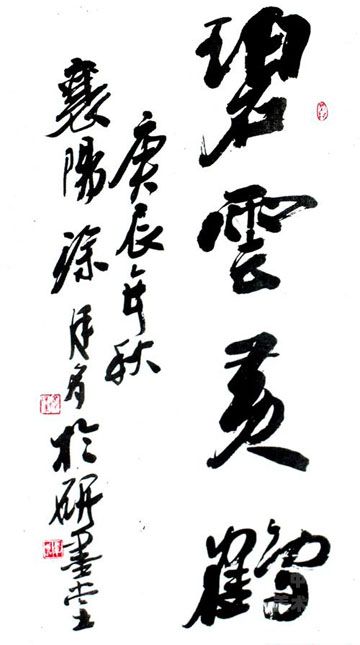 碧雲黄鶴
庚辰年秋
襄陽徐 於研墨堂